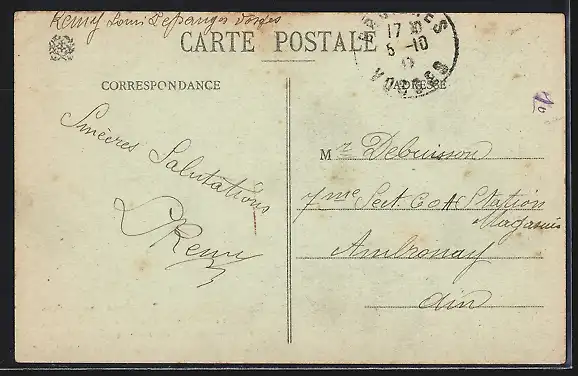 Remy Louis Lepanges Vosges
CARTE POSTALE
17
5-10
VOSGES
CORRESPONDANCE
ADRESSE
Sincères Salutations
L Remy
Mr Debuisson
7me Sect COA Station
Magasin
Ambronay
Ain